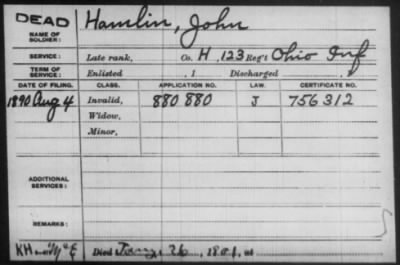 DEAD
NAME OF SOLDIER: Hamlin, John
SERVICE: Late rank, Co. H, 123 Reg't Ohio Inf
TERM OF SERVICE: Enlisted , 1 Discharged , 1
DATE OF FILING. CLASS. APPLICATION NO. LAW. CERTIFICATE NO.
1890 Aug 4 Invalid, 880 880 J 756312
Widow,
Minor,
ADDITIONAL SERVICES:
REMARKS:
Died Jany. 26, 1901, at